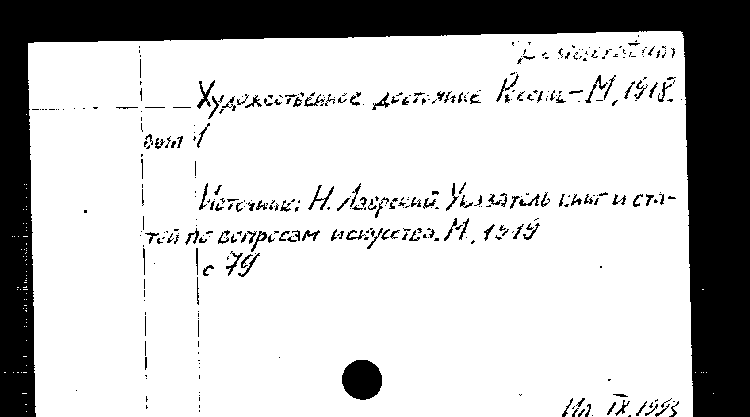 Desideratum
Художественное достояние России – М, 1918.
вып 1
Источник: Н. Лаврский. Указатель книг и ста-
тей по вопросам искусства. М, 1919
с 79
IX.1993